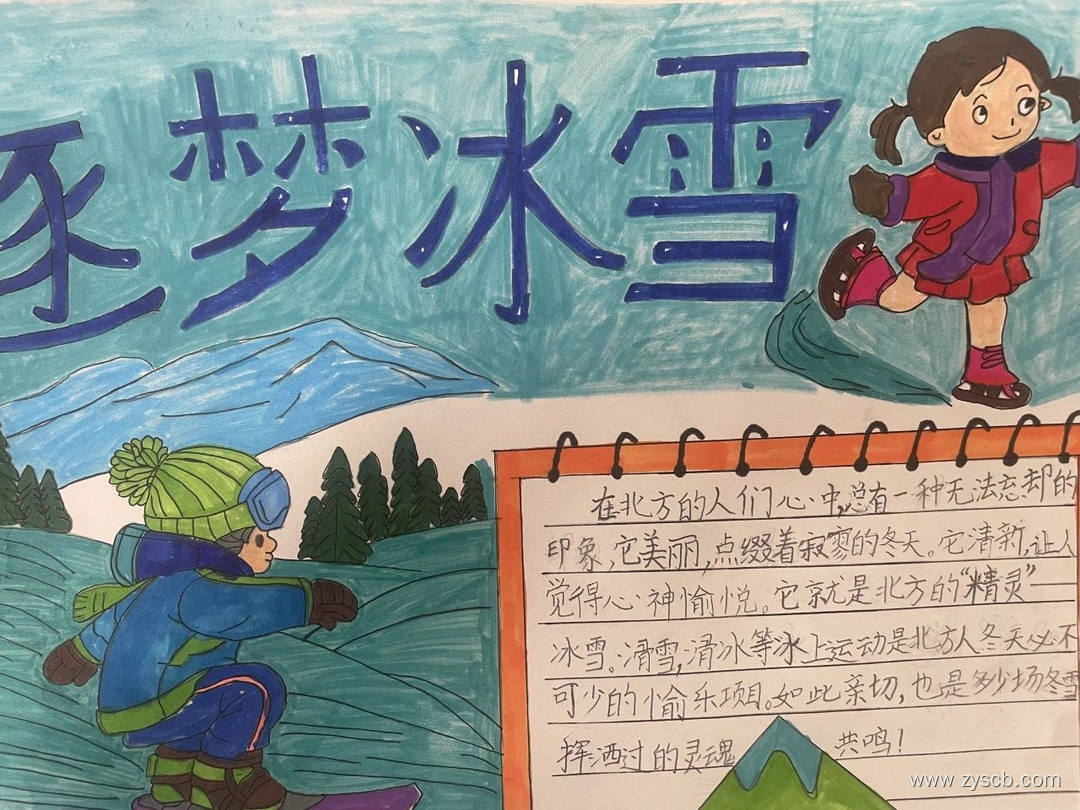 逐梦冰雪
在北方的人们心中,总有一种无法忘却的
印象,它美丽,点缀着寂寥的冬天。它清新,让人
觉得心神愉悦。它就是北方的“精灵”——
冰雪。滑雪,滑冰等冰上运动是北方人冬天必不
可少的愉乐项目。如此亲切,也是多少场冬雪
挥洒过的灵魂 共鸣!
www.zyscb.com